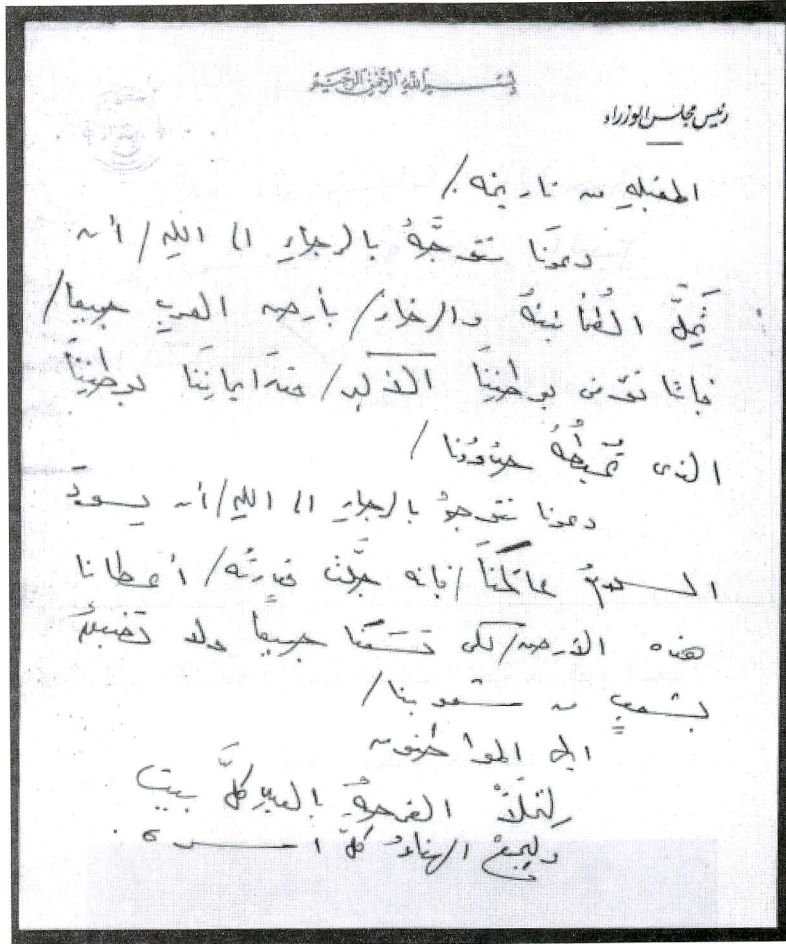 بسم الله الرحمن الرحيم
رئيس مجلس الوزراء
المقبلة من تاريخه./
دعونا نتوجَّهُ بالرجاءِ الى اللهِ/ أن
تَحِلَّ الطُمأنينةُ والرخاءُ/ بأرض العربِ جميعا/
فإننا نؤمن بوطنِنَا الأكبر/ منذ ايمانِنَا بوطنِنَا
الذى تُحيطُهُ حدودُنا/
دعونا نتوجهُ بالرجاءِ الى اللهِ/ أن يسودَ
السلامُ عالمَنَا/ فإنه جلَّت قدرتُه/ أعطانا
هذه الأرض/ لكى تَسَعَنا جميعاً ولا تضيقُ
بشعبٍ من شعوبنا/
ايها المواطنون
لِتملأْ الفرحةُ بالعيدِ كلَّ بيت
وليجمعْ الهناءُ كلَّ أسرة.